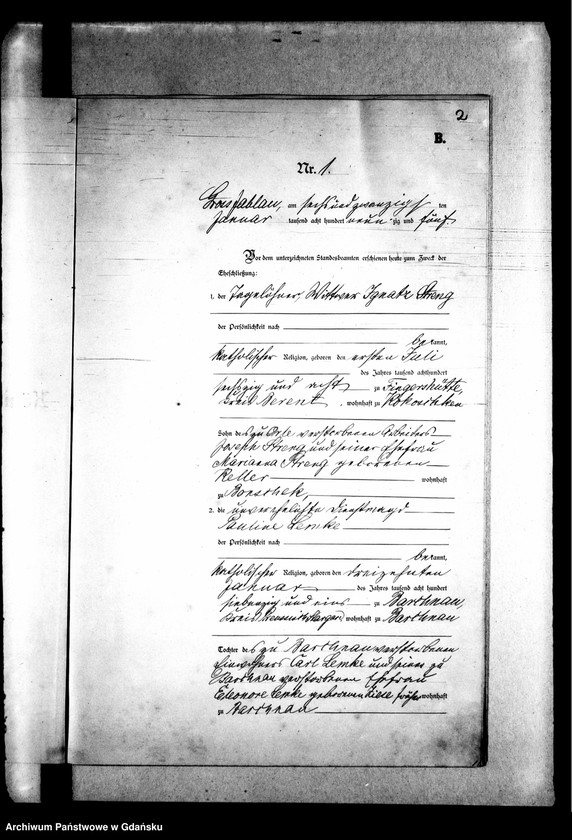 2
B.
Nr. 1.
Gross Jablau, am sechsundzwanzigsten
Januar tausend acht hundert neunzig und fünf
Vor dem unterzeichneten Standesbeamten erschienen heute zum Zweck der
Eheschließung:
1. der Tagelöhner, Wittwer Ignatz Streng
der Persönlichkeit nach
bekannt,
katholischer Religion, geboren den ersten Juli
des Jahres tausend achthundert
sechszig und acht zu Fingershütte,
Kreis Berent, wohnhaft zu
Sohn des zu verstorbenen Arbeiters
Joseph Streng und seiner Ehefrau
Marianna Streng geborenen
wohnhaft
zu
2. die unverehelichte Dienstmagd
Pauline Lemke
der Persönlichkeit nach
bekannt,
katholischer Religion, geboren den dreizehnten
Januar des Jahres tausend acht hundert
siebenzig und eins zu Barthnau,
Kreis wohnhaft zu Barthnau
Tochter des zu Barthnau verstorbenen
Einwohners Carl Lemke und seiner zu
Barthnau verstorbenen Ehefrau
Eleonore Lemke geborenen früher wohnhaft
zu Barthnau
Archiwum Państwowe w Gdańsku